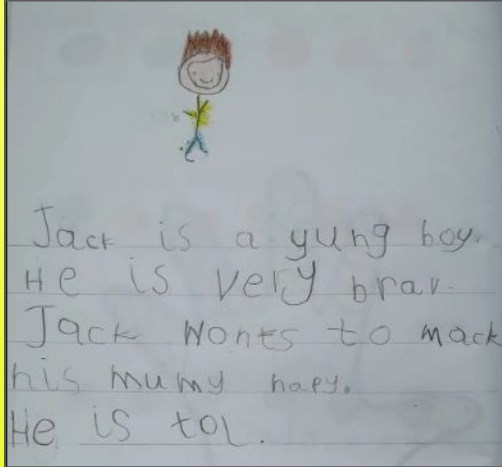 Jack is a yung boy.
He is very brav.
Jack wonts to mack
his mumy hapy.
He is tol.